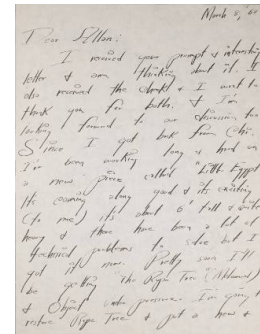 March 8, 60
Dear Ellen:
I received your prompt & interesting
letter & am thinking about it. I
also received the check & I want to
thank you for both. & I'm
looking forward to our discussion too
Since I got back from Chi.
I've been working long & hard on
a new piece called "Little Egypt
Its coming along good & its exciting
(to me) its about 6' tall & quite
heavy & there have been a lot of
technical problems to solve but I
got it now. Pretty soon I'll
be getting "The Rope Tree (Ahkmed)
& Object under pressure. I'm going
restore Rope Tree & put a new